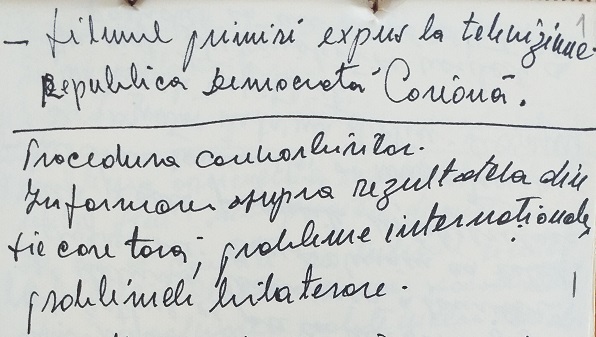 — filmul primiri expus la televiziune.
Republica Democrată Coreiană.
Procedura convorbirilor.
Informare asupra rezultatelor din
fiecare țară; probleme internaționale,
problemele bilaterare.